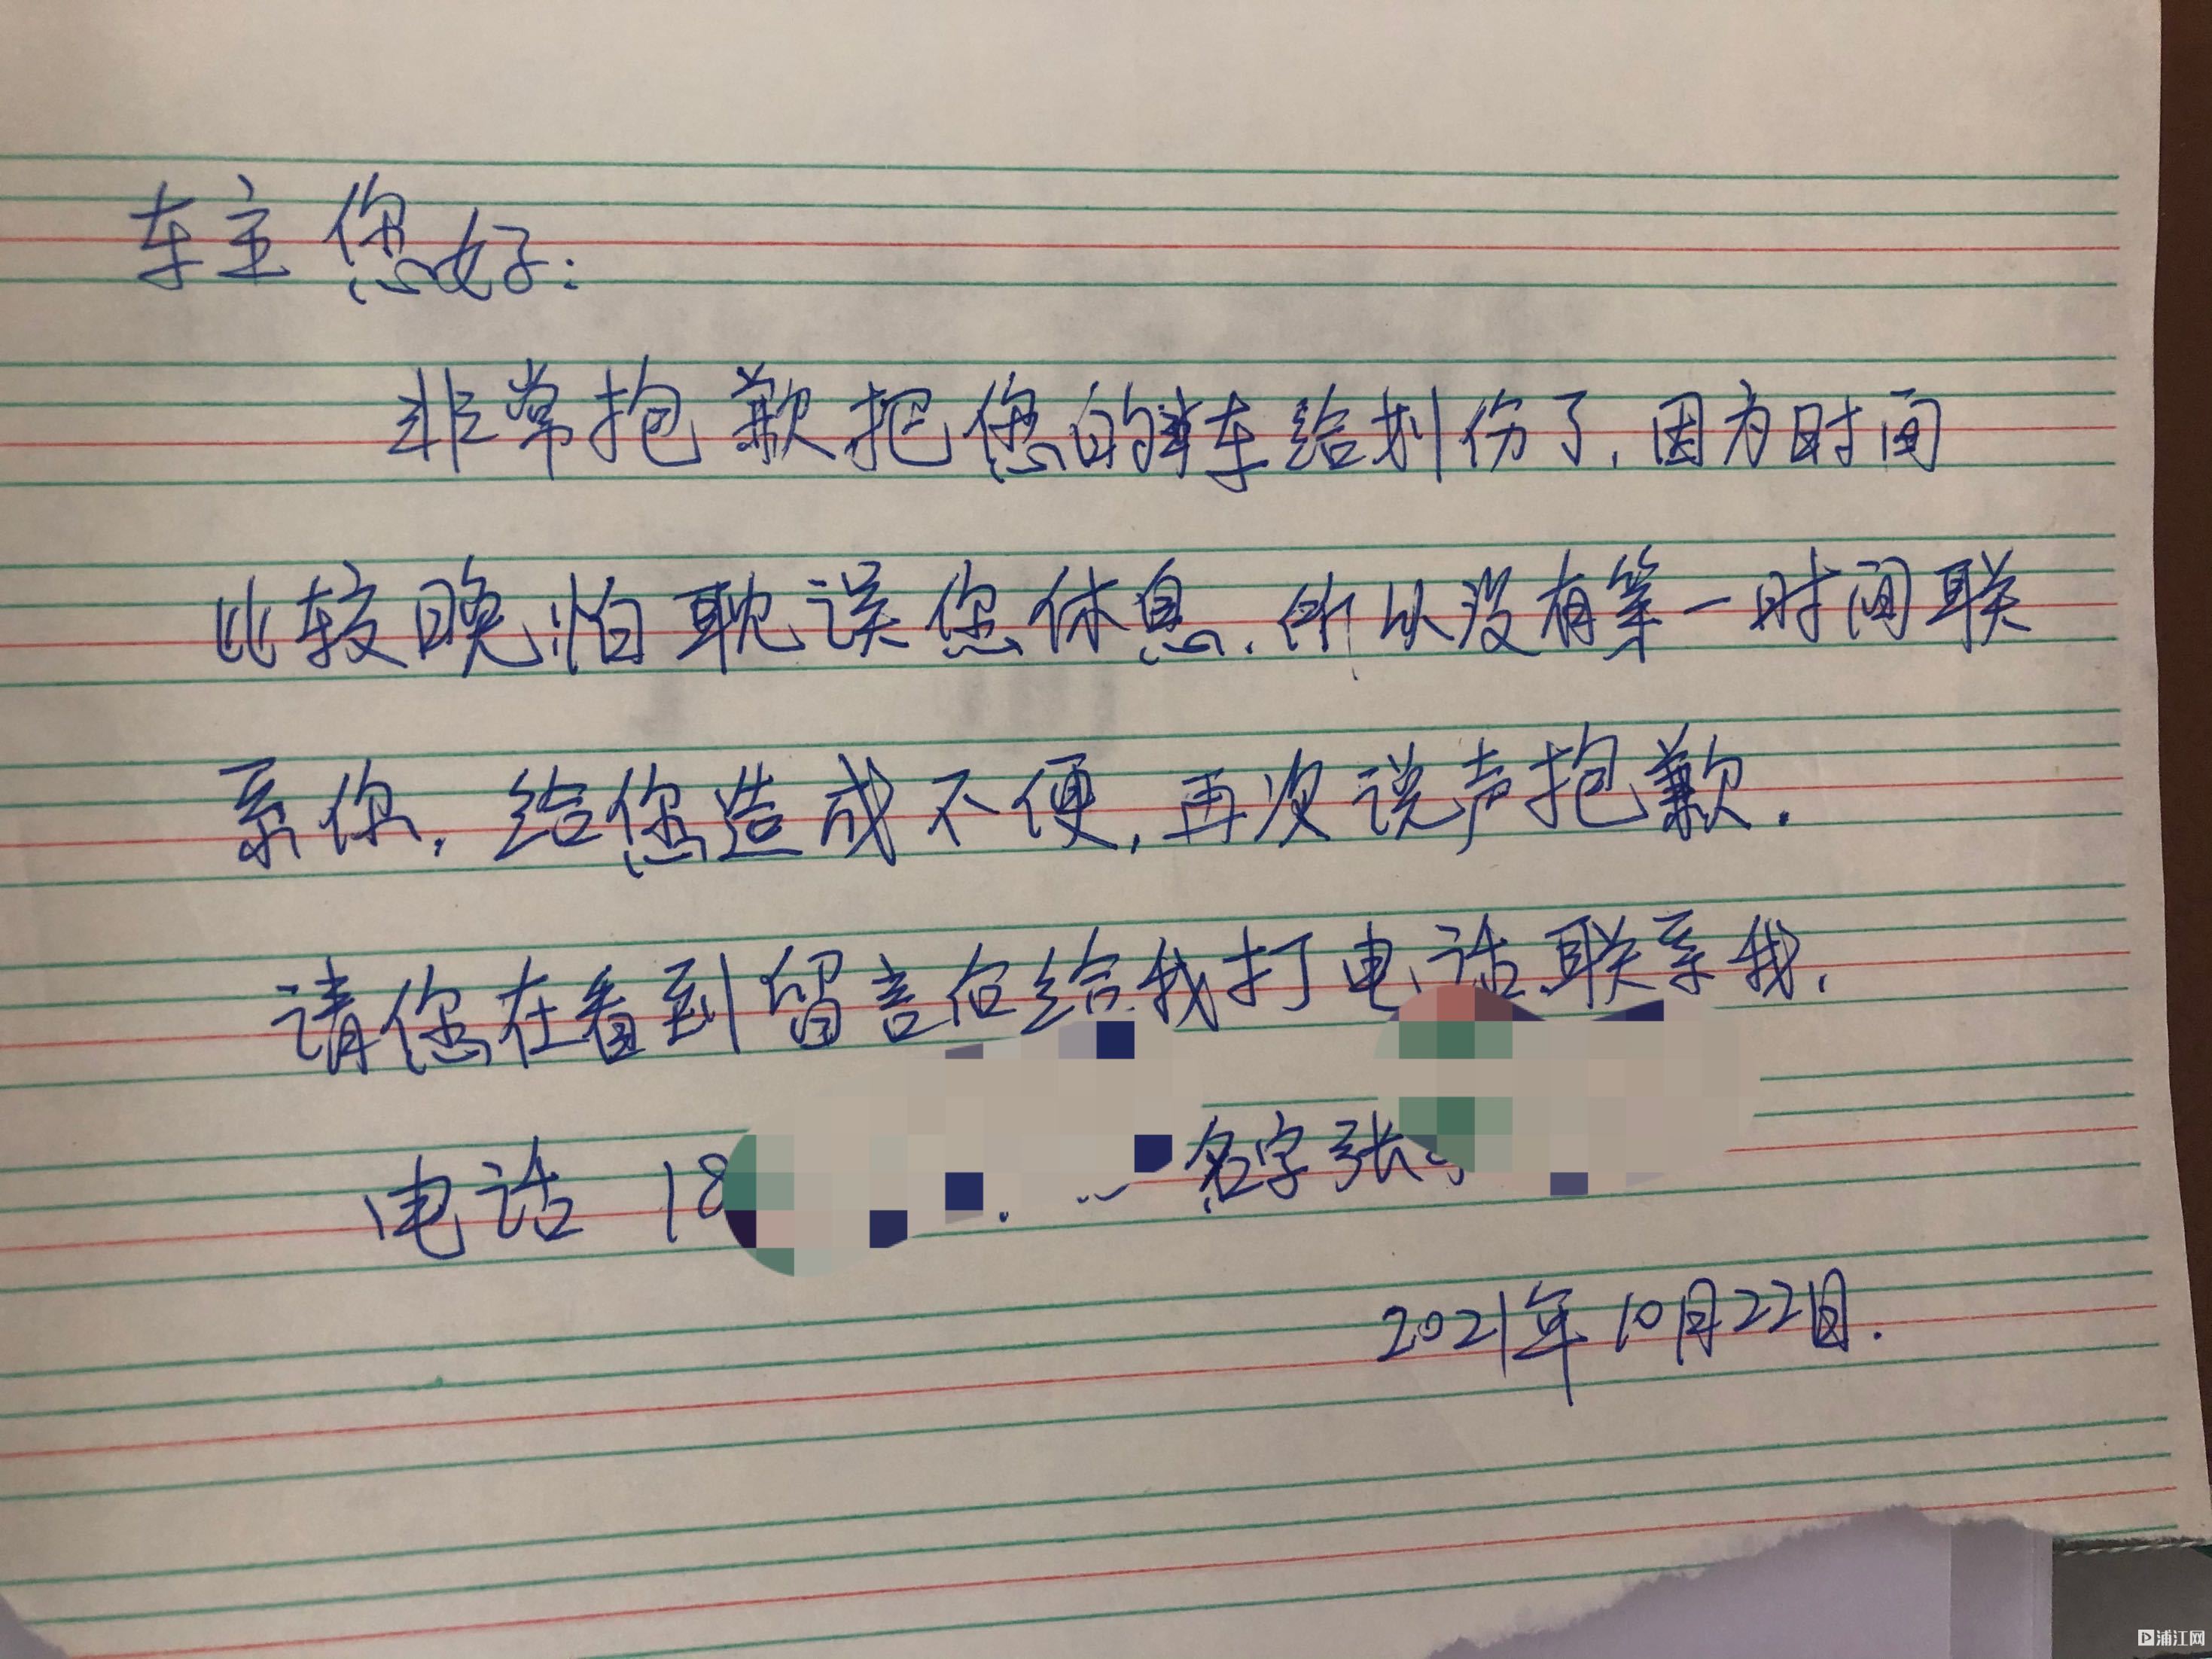 车主您好：
非常抱歉把您的车给划伤了，因为时间
比较晚怕耽误您休息，所以没有第一时间联
系你，给您造成不便，再次说声抱歉．
请您在看到留言后给我打电话联系我，
电话 18 名字张
2021年10月22日．
浦江网